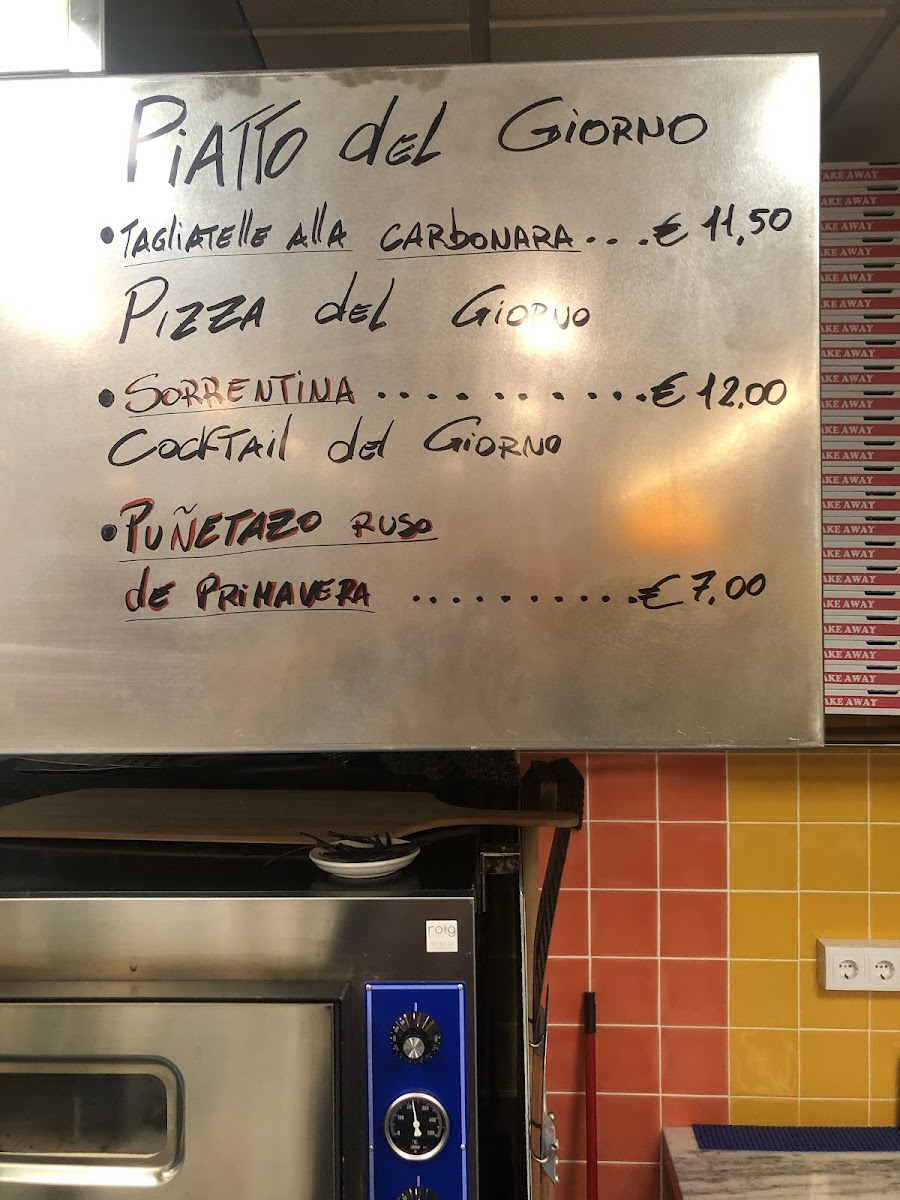 PiATTO del GiORNO
• TAGLiATElle Alla CARbONARA....€ 11,50
PiZZA del GiORNO
• SORRENTiNA ............€ 12,00
COCKTAil del GiORNO
• PUÑETAZO RUSO
de PRiMAVERA ..........€ 7,00
TAKE AWAY
AKE AWAY
AKE AWAY
AKE AWAY
AKE AWAY
AKE AWAY
AKE AWAY
AKE AWAY
AKE AWAY
AKE AWAY
AKE AWAY
AKE AWAY
AKE AWAY
AKE AWAY
AKE AWAY
AKE AWAY
AKE AWAY
AKE AWAY
AKE AWAY
AKE AWAY
AKE AWAY
AKE AWAY
roig